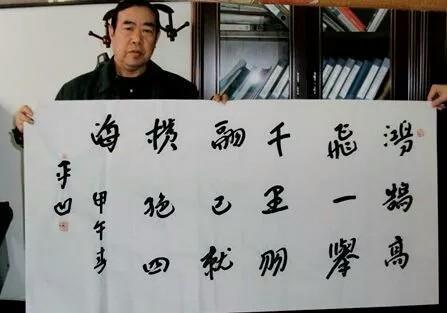 鸿鹄高
飛一舉
千里羽
翮已就
横绝四
海 甲午
平凹